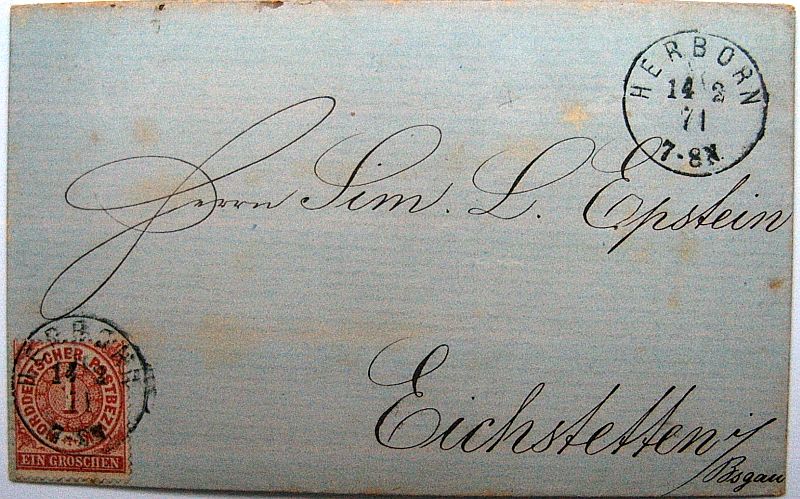 HERBORN
14 2
71
7-8N.
Herrn Sim. L. Epstein
Eichstetten i/
Bsgau
HERBORN
14 2
71
NORDDEUTSCHER POSTBEZIRK
1
EIN GROSCHEN